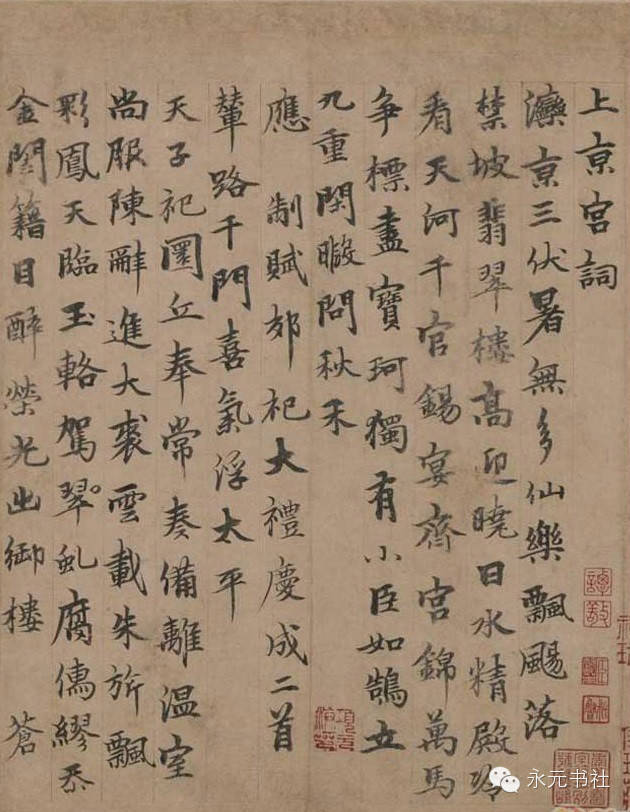 上京宮詞
灤京三伏暑無多仙樂飄颺落
禁坡翡翠樓高迎曉日水精殿冷
看天河千官錫宴齊宮錦萬馬
争標盡寶珂獨有小臣如鵠立
九重閑暇問秋禾
應制賦郊祀大禮慶成二首
輦路千門喜氣浮太平
天子祀圜丘奉常奏備離温室
尚服陳辭進大裘雲載朱旂飄
彩鳳天臨玉輅駕翠虬腐儒繆忝
金閨籍目醉榮光出御樓 蒼
永元书社